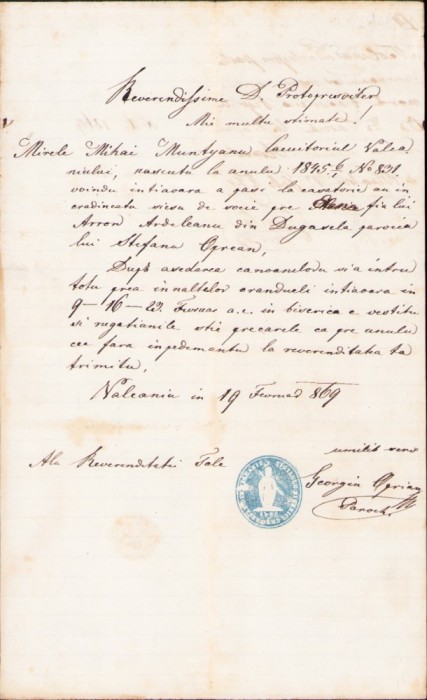 Reverendissime D. Protopresviter
Mie multu stimate!
Mirele Mihai Muntyanu lacuitoriul Valea-
niului, nascutu la anulu 1845 No 831
voindu intioara a pasi la casatorie au in
credineatu viersu de vocie pre fia lui
Arron Ardeleanu din Dugasela parocia
lui Stefanu Gyrean,
Dupo asedarea canoanelodu via intru
totu prea innaltelor oranduieli intioara in
9-16-23. Fevruar a.c. in biserica e vestitu
si rugatianile otie precarele ca pre anulu
cee fara inpedementu la reverenditatea ta
trimitu,
Valeaniu in 19 Fevruar 869
umilit
Ala Reverenditatii Tale
Georgiu
Paroch